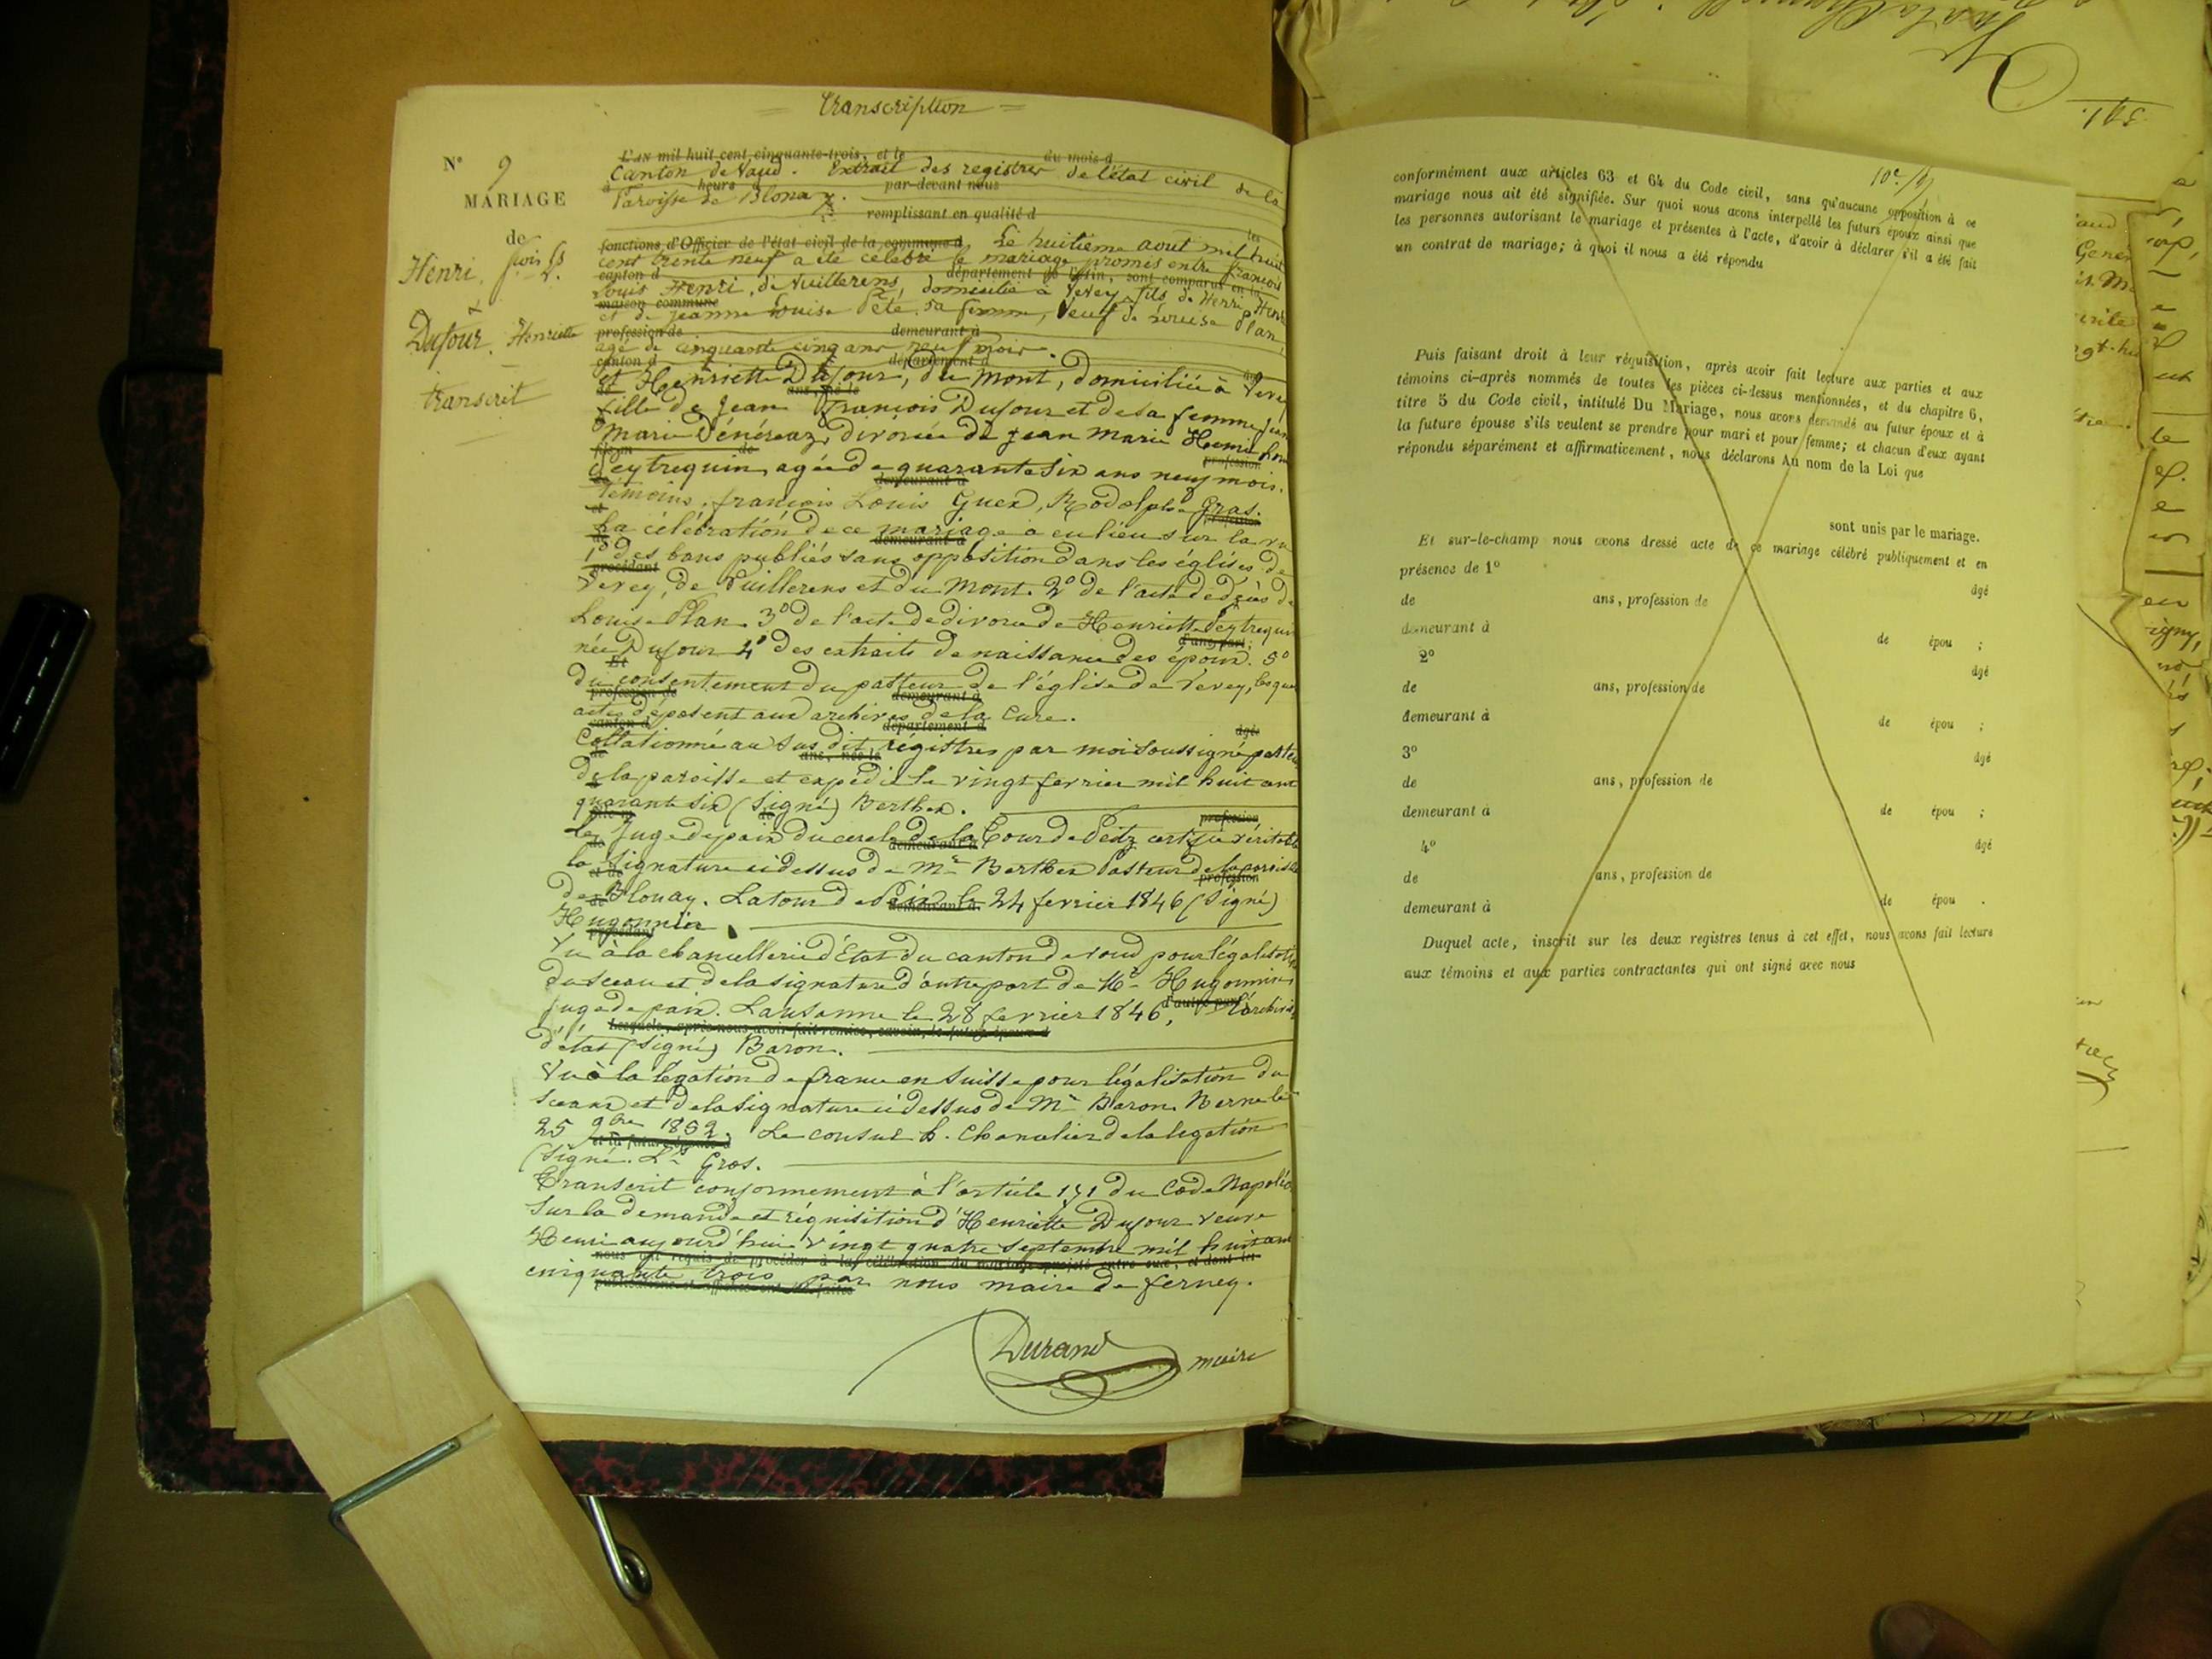 Transcription
N° 9
MARIAGE
de
Henri, fois Ls
&
Dufour, Henriette
transcrit
L'AN mil huit cent cinquante-trois, et le du mois d
Canton de Vaud. Extrait des registres de l'état civil de la
à heures d par-devant nous
Paroisse de Blonay.
remplissant en qualité d les
fonctions d'Officier de l'état civil de la commune d Le huitième aout mil huit
cent trente neuf a été célébré le mariage promis entre françois
canton d département de l'Ain, sont comparus en la
Louis Henri, de Vuillerens, domicilié à Vevey, fils de Henri Henri
maison commune
et de Jeanne Louise Pete, sa femme, veuf de Louise Plan
profession de demeurant à
agé de cinquante cinq ans neuf mois.
canton d département d
et Henriette Dufour, du Mont, domiciliée à Vevey
de ans, née le
fille de Jean François Dufour et de sa femme
Marie Dénéréaz, divorcée de Jean Marie Henri
fils m de profession
Peytrequin, agée de quarante six ans neuf mois.
de demeurant à
Témoins, françois Louis Guex, Rodolphe Gras.
et profession
La célébration de ce mariage a eu lieu sur la vu
de demeurant à
1° des bans publiés sans opposition dans les églises de
procédant
Vevey, de Vuillerens et du Mont. 2° de l'acte de décès de
Louise Plan. 3° de l'acte de divorce de Henriette Peytrequin
d'une part;
née Dufour 4° des extraits de naissance des époux. 5°
Et
du consentement du pasteur de l'église de Vevey, lesquels
profession de demeurant à
actes déposent aux archives de la Cure.
canton d département d âgé
Collationné au sus dit régistres par moi soussigné pasteur
de ans, née le
de la paroisse et expédié le vingt fevrier mil huit cent
quarante six (signé) Berthex.
fille m de profession
Le Juge de paix du cercle de la Tour de Peilz certifie véritable
de demeurant à
la signature ci dessus de Mr Berthex Pasteur de la paroisse
et de profession
de Blonay. La tour de Peilz le 24 fevrier 1846 (signé)
de demeurant à
Hugonnier
procédant
Vu à la chancellerie d'Etat du canton de vaud pour légalisation
du sceau et de la signature d'autre part de Mr Hugonnier
d'autre part
juge de paix. Lausanne le 28 fevrier 1846, L'archiviste
Lesquels, après nous avoir fait remise, savoir, le futur époux d
d'état (signé) Baron.
Vu à la légation de france en Suisse pour légalisation du
sceau et de la signature ci dessus de Mr Baron. Berne le
25 9bre 1852. Le consul h. Chancelier de la légation
et la future épouse d
(signé. Ls Gros.
Transcrit conformement à l'article 171 du Code Napoléon
sur la demande et réquisition d'Henriette Dufour veuve
Henri aujourd'hui vingt quatre septembre mil huit cent
nous ont requis de procéder à la célébration du mariage projeté entre eux, et dont les
cinquante trois par nous maire de ferney.
publications et affiches ont été faites
Durand maire
conformément aux articles 63 et 64 du Code civil, sans qu'aucune opposition à ce
mariage nous ait été signifiée. Sur quoi nous avons interpellé les futurs époux ainsi que
les personnes autorisant le mariage et présentes à l'acte, d'avoir à déclarer s'il a été fait
un contrat de mariage; à quoi il nous a été répondu
Puis faisant droit à leur réquisition, après avoir fait lecture aux parties et aux
témoins ci-après nommés de toutes les pièces ci-dessus mentionnées, et du chapitre 6,
titre 5 du Code civil, intitulé Du Mariage, nous avons demandé au futur époux et à
la future épouse s'ils veulent se prendre pour mari et pour femme; et chacun d'eux ayant
répondu séparément et affirmativement, nous déclarons Au nom de la Loi que
sont unis par le mariage.
Et sur-le-champ nous avons dressé acte de ce mariage célébré publiquement et en
présence de 1° âgé
de ans, profession de
demeurant à de épou ;
2° âgé
de ans, profession de
demeurant à de épou ;
3° âgé
de ans, profession de
demeurant à de épou ;
4° âgé
de ans, profession de
demeurant à de épou .
Duquel acte, inscrit sur les deux registres tenus à cet effet, nous avons fait lecture
aux témoins et aux parties contractantes qui ont signé avec nous